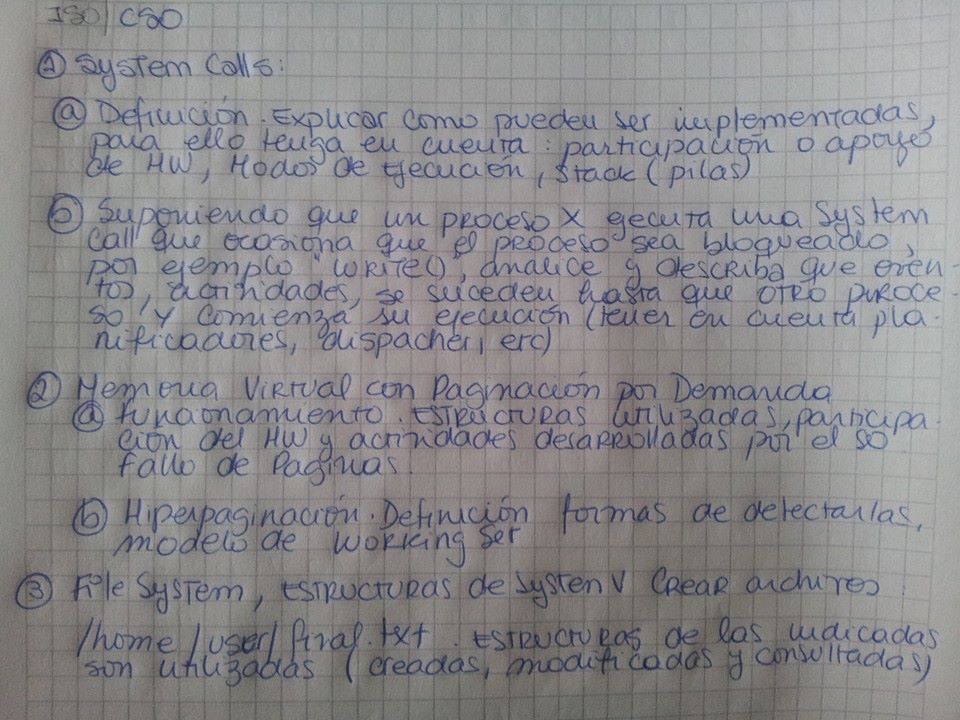 ISO/CSO
① System Calls:
ⓐ Definición. Explicar como pueden ser implementadas,
para ello tenga en cuenta: participación o apoyo
de HW, Modos de Ejecución, Stack (pilas)
ⓑ Suponiendo que un proceso X ejecuta una System
Call que ocasiona que el proceso sea bloqueado,
por ejemplo "WRITE(), analice y describa que even-
tos, actividades, se suceden hasta que otro proce-
so Y comienza su ejecución (tener en cuenta pla-
nificadores, dispacher, etc)
② Memoria Virtual con Paginación por Demanda
ⓐ Funcionamiento. Estructuras utilizadas, participa-
ción del HW y actividades desarrolladas por el SO
fallo de Paginas.
ⓑ Hiperpaginación. Definición formas de detectarlas,
modelo de Working Set
③ File System, Estructuras de System V Crear archivos:
/home/user/final.txt. Estructuras de las indicadas
son utilizadas (creadas, modificadas y consultadas)